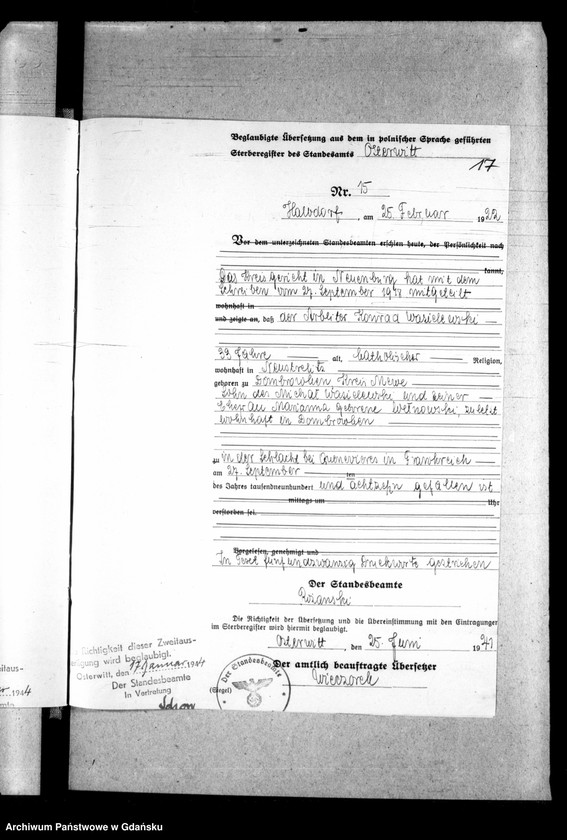 Beglaubigte Übersetzung aus dem in polnischer Sprache geführten
Sterberegister des Standesamts Osterwitt
17
Nr. 15
Halbdorf, am 25. Februar 1922
Vor dem unterzeichneten Standesbeamten erschien heute, der Persönlichkeit nach
kannt,
Das Kreisgericht in Neuenburg hat mit dem
Schreiben vom 27. September 19 mitgeteilt
wohnhaft in
und zeigte an, daß der Arbeiter Konrad Wasielewski
39 Jahre alt, katholischer Religion,
wohnhaft in Neustrelitz
geboren zu Dombrowken Kreis Mewe
Sohn des Michal Wasielewski und seiner
Ehefrau Marianna geborene, zuletzt
wohnhaft in Dombrowken
zu in der Schlacht bei in Frankreich
am 27. September ten
des Jahres tausendneunhundert und achtzehn gefallen ist
mittags um Uhr
verstorben sei.
Vorgelesen, genehmigt und
In Gest fünfundzwanzig Druckworte gestrichen
Der Standesbeamte
Rozanski
Die Richtigkeit der Übersetzung und die Übereinstimmung mit den Eintragungen
im Sterberegister wird hiermit beglaubigt.
Osterwitt, den 25. Juni 1941
Der amtlich beauftragte Übersetzer
(Siegel) Wieczorek
Der Standesbeamte
Richtigkeit dieser Zweitaus-
fertigung wird beglaubigt.
Osterwitt, den 17. Januar 1944
Der Standesbeamte
In Vertretung
itaus-
1944
amte
Archiwum Państwowe w Gdańsku